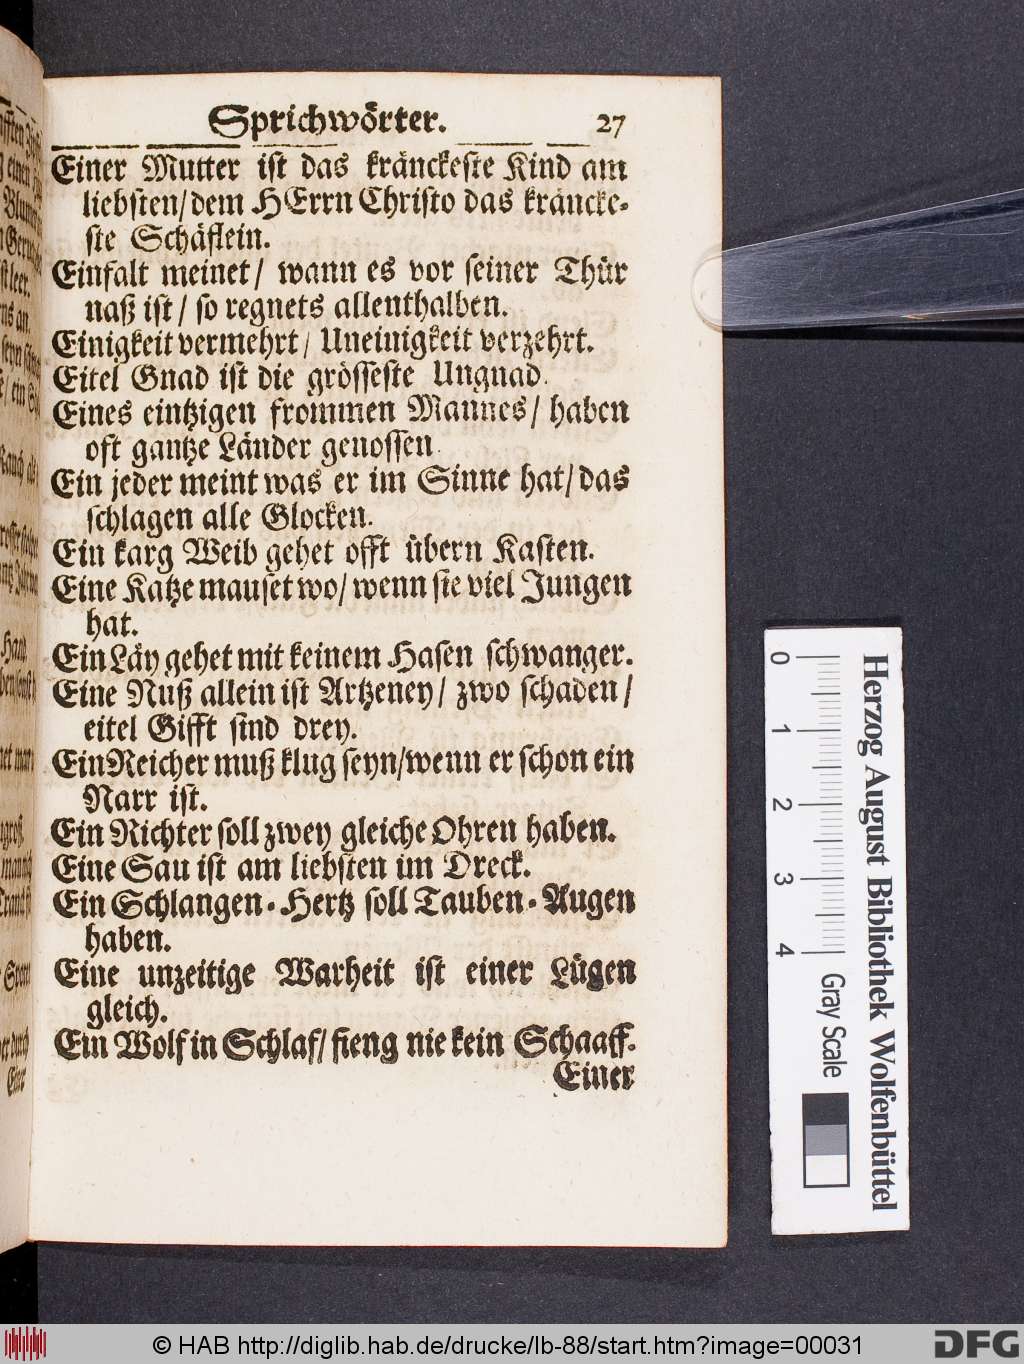 Sprichwörter. 27
Einer Mutter ist das kränckeste Kind am
liebsten/dem HErrn Christo das kräncke-
ste Schäflein.
Einfalt meinet/ wann es vor seiner Thür
naß ist/ so regnets allenthalben.
Einigkeit vermehrt/ Uneinigkeit verzehrt.
Eitel Gnad ist die grösseste Ungnad.
Eines eintzigen frommen Mannes/ haben
oft gantze Länder genossen.
Ein jeder meint was er im Sinne hat/ das
schlagen alle Glocken.
Ein karg Weib gehet offt übern Kasten.
Eine Katze mauset wo/ wenn sie viel Jungen
hat.
Ein Läy gehet mit keinem Hasen schwanger.
Eine Nuß allein ist Artzeney/ zwo schaden/
eitel Gifft sind drey.
Ein Reicher muß klug seyn/wenn er schon ein
Narr ist.
Ein Richter soll zwey gleiche Ohren haben.
Eine Sau ist am liebsten im Dreck.
Ein Schlangen-Hertz soll Tauben-Augen
haben.
Eine unzeitige Warheit ist einer Lügen
gleich.
Ein Wolf in Schlaf/ fieng nie kein Schaaff.
Einer
Herzog August Bibliothek Wolfenbüttel
0 1 2 3 4 Gray Scale
© HAB http://diglib.hab.de/drucke/lb-88/start.htm?image=00031
DFG